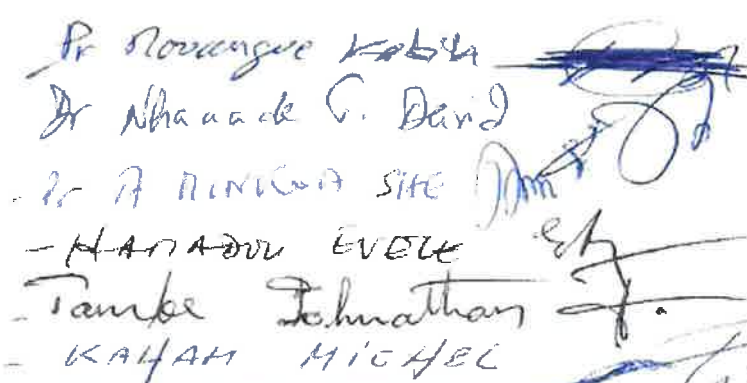 Pr Mouangue Kobila
Dr Nhanack C. David
- Pr A MINKOA SHE
- HAMADOU EVELE
- Tambe Johnathan
- KAHAM MICHEL